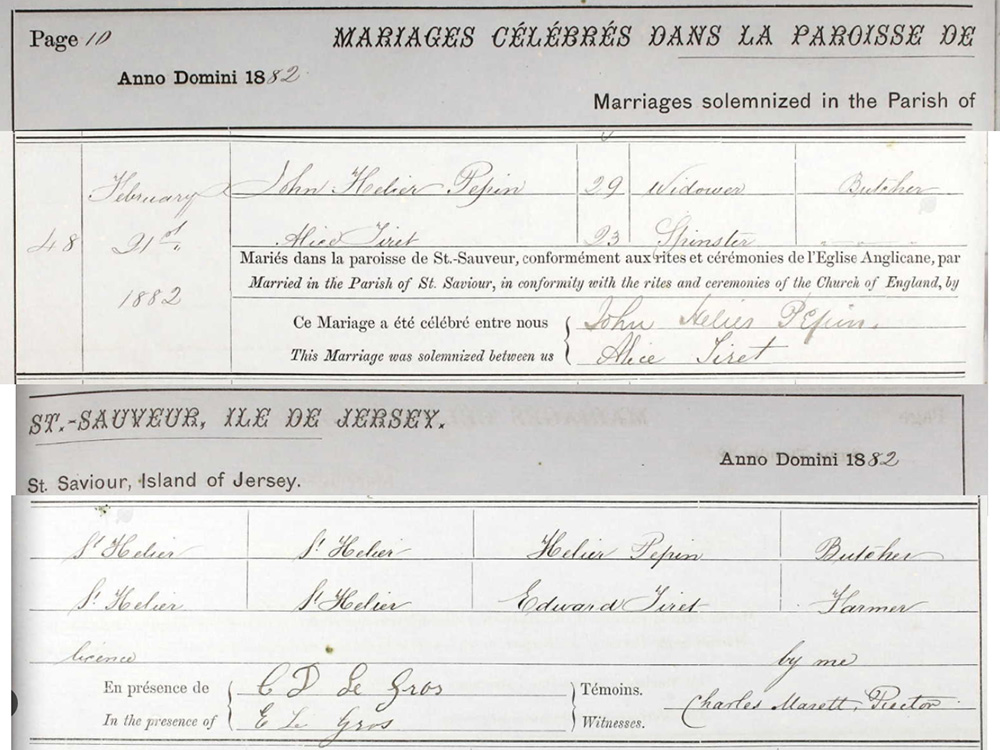 Page 10
MARIAGES CÉLÉBRÉS DANS LA PAROISSE DE
Anno Domini 1882
Marriages solemnized in the Parish of
February John Helier Pepin 29 Widower Butcher
48 21st Alice Tiret 23 Spinster
Mariés dans la paroisse de St.-Sauveur, conformément aux rites et cérémonies de l'Eglise Anglicane, par
Married in the Parish of St. Saviour, in conformity with the rites and ceremonies of the Church of England, by
1882
Ce Mariage a été célébré entre nous John Helier Pepin.
This Marriage was solemnized between us Alice Tiret
ST.-SAUVEUR, ILE DE JERSEY.
Anno Domini 1882
St. Saviour, Island of Jersey.
St Helier St Helier Helier Pepin Butcher
St Helier St Helier Edward Tiret Farmer
licence by me
En présence de C D Le Gros Témoins.
In the presence of E Le Gros Witnesses.
Charles Marett, Rector